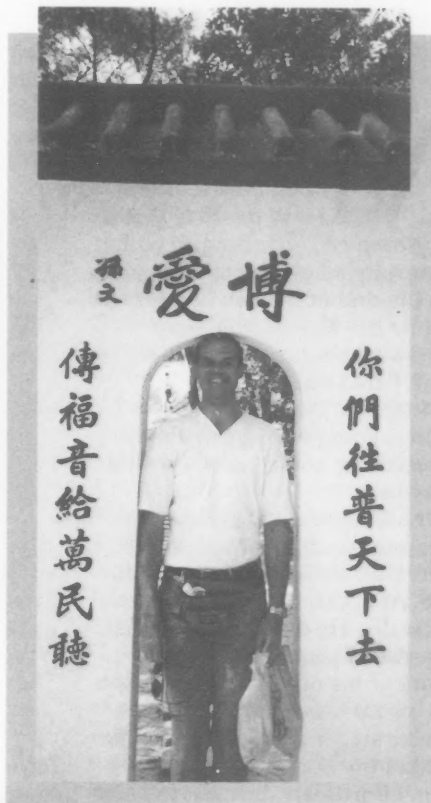 博愛
孫文
你們往普天下去
傳福音給萬民聽